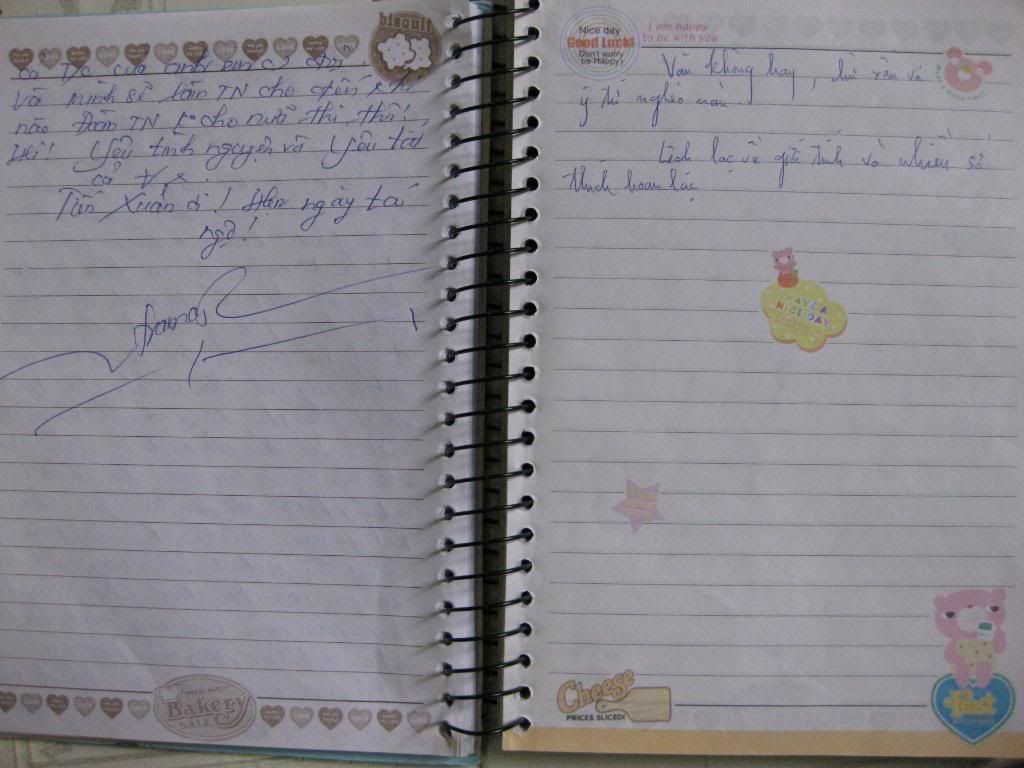 biscuit
cả T/c của anh em
và mình sẽ làm TN cho đến khi
nào Đoàn TN k cho nữa thì thôi!
Hi! Yêu tình nguyện và Yêu tất
cả
Tiên Xuân ơi! Hẹn ngày tái
ngộ!
Bakery
SALE
Nice day
Good Luck!
Don't worry
be Happy!
I am happy
to be with you
Văn không hay, chữ xấu và
ý thì nghèo nàn.
Lệch lạc về giới tính và nhiều sở
thích hoan lạc
HAVE A
NICE DAY
Cheese
PRICES SLICED!